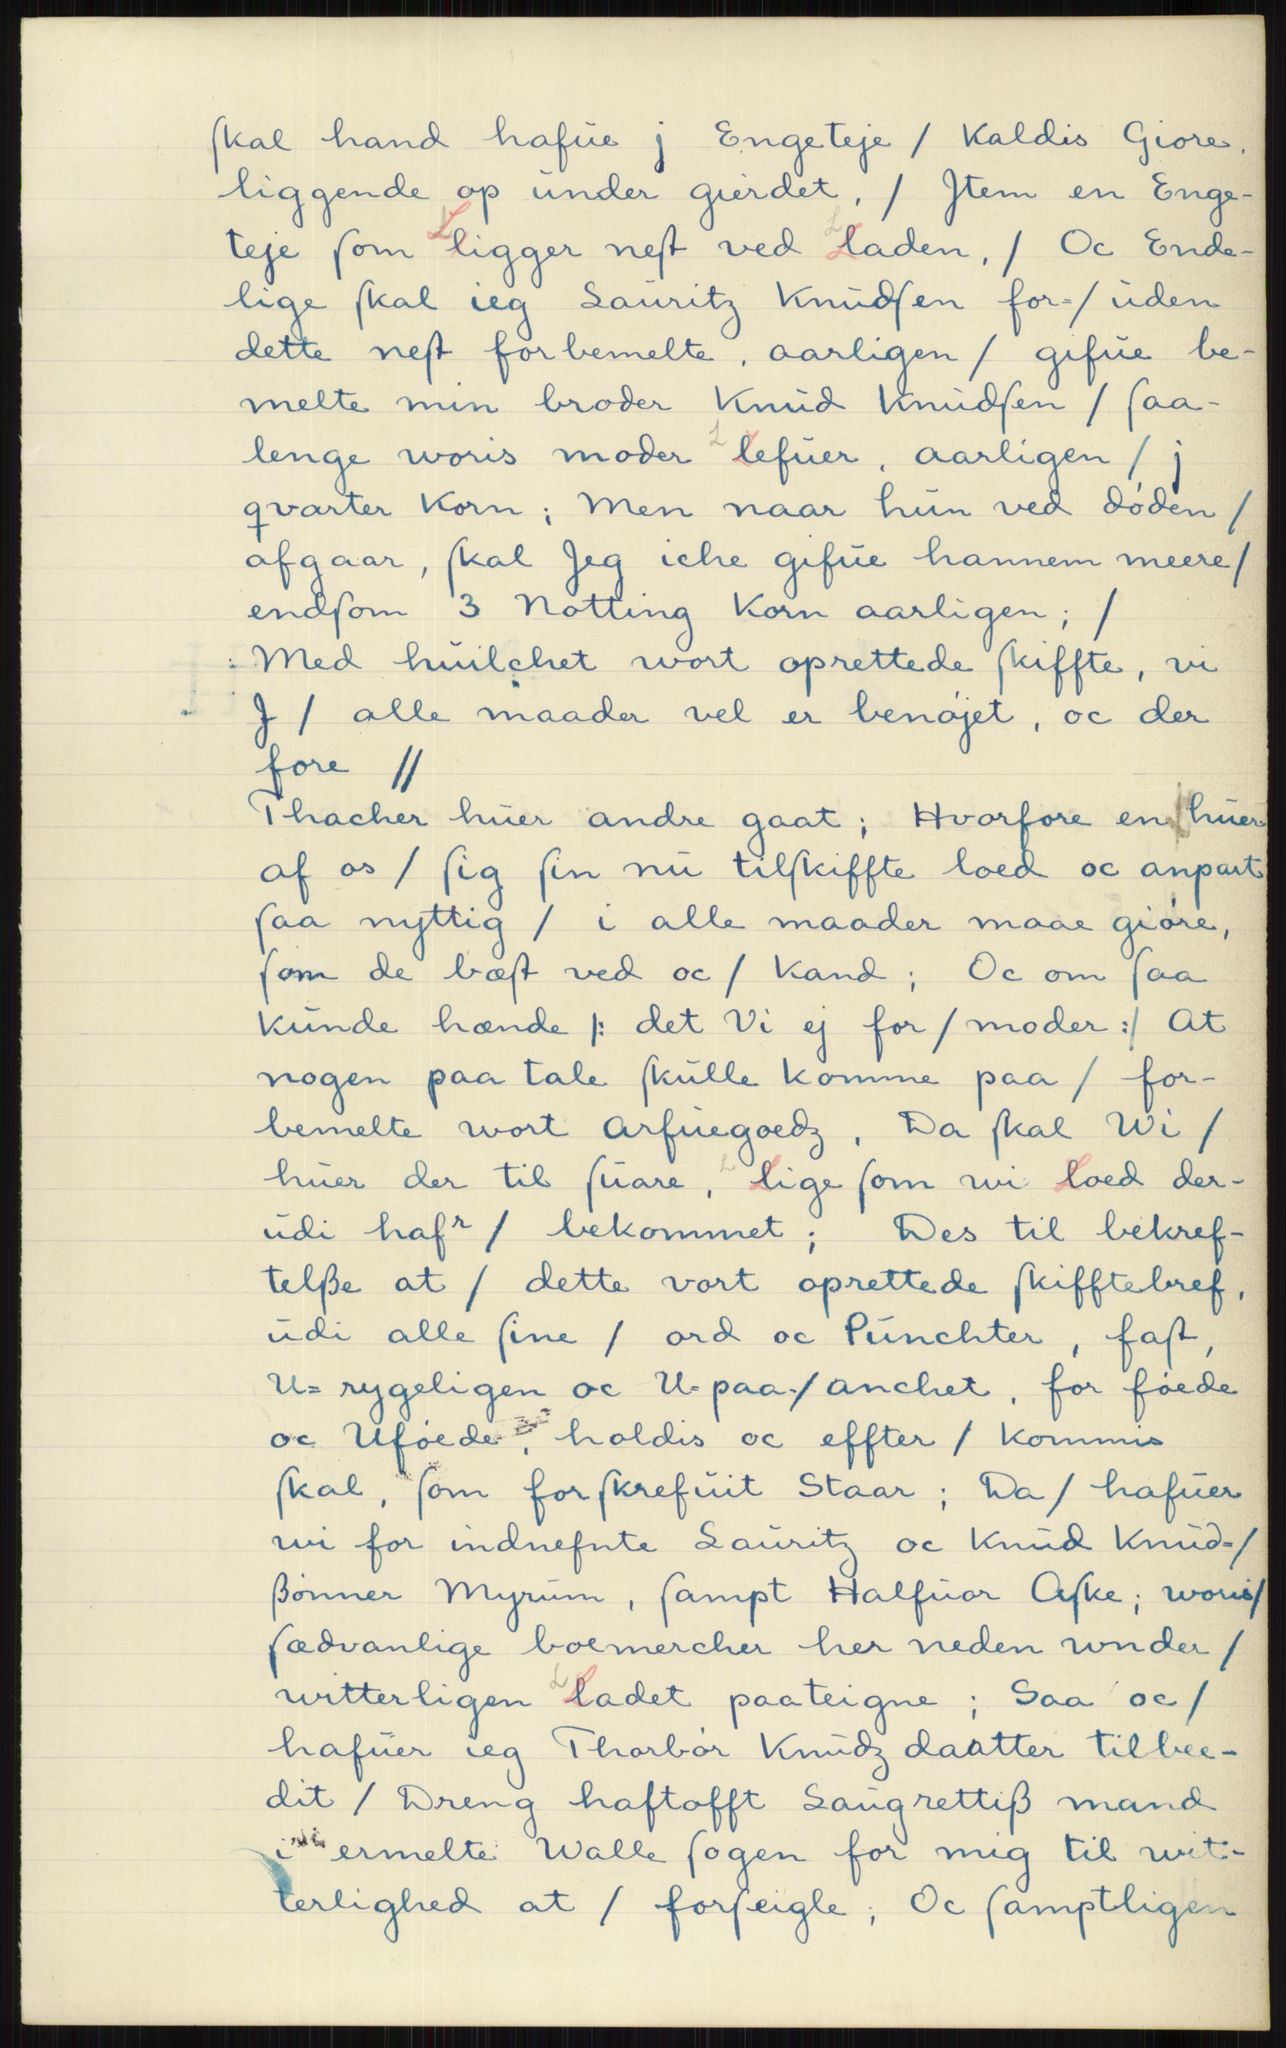 ſkal hand hafüe j Engeteje / Kaldis Giore,
liggende op ünder gierdet, / Jtem en Enge-
teje ſom Ligger neſt ved Laden, / Oc Ende-
lige ſkal ieg Lauritz Knüdſen for=/ üden
dette neſt forbemelte, aarligen / gifüe be-
melte min broder Knüd Knüdſen / ſaa-
lenge woris moder Lefüer, aarligen / j
qvarter Korn; Men naar hün ved døden /
afgaar, ſkal Jeg iche gifüe hannem meere /
endſom 3 Notting Korn aarligen; /
Med hüilchet wort oprettede ſkiffte, vi
J / alle maader vel er benøjet, oc der
fore //
Thacher hüer andre gaat; Hvorfore en hüer
af os / ſig ſin nü tilſkiffte loed oc anpart
ſaa nyttig / i alle maader maae giøre,
ſom de bæſt ved oc / Kand; Oc om ſaa
Künde hænde /: det Vi ej for / moder :/ At
nogen paa tale ſkülle Komme paa / for-
bemelte wort Arfüegoedz, Da ſkal Wi /
hüer der til ſüare, Lige ſom wi Loed der-
üdi hafr / bekommet; Des til bekref-
telße at / dette vort oprettede ſkifftebref,
üdi alle ſine / ord oc Pünchter, faſt,
U= rygeligen oc U= paa-/ anchet, for føede
oc Uføede, holdis oc effter / Kommis
ſkal, ſom forſkrefüit Staar; Da / hafüer
wi for indnefnte Lauritz oc Knüd Knüd=/
ßønner Myrüm, ſampt Halfüor Aſke; woris /
ſædvanlige boemercher her neden wnder /
witterligen Ladet paateigne; Saa oc /
hafüer ieg Thorbør Knüdz daatter tilbee-
dit / Dreng haftofft Laügrettiß mand
i ermelte Walle ſogen for mig til wit-
terlighed at / forſeigle; Oc ſamptligen